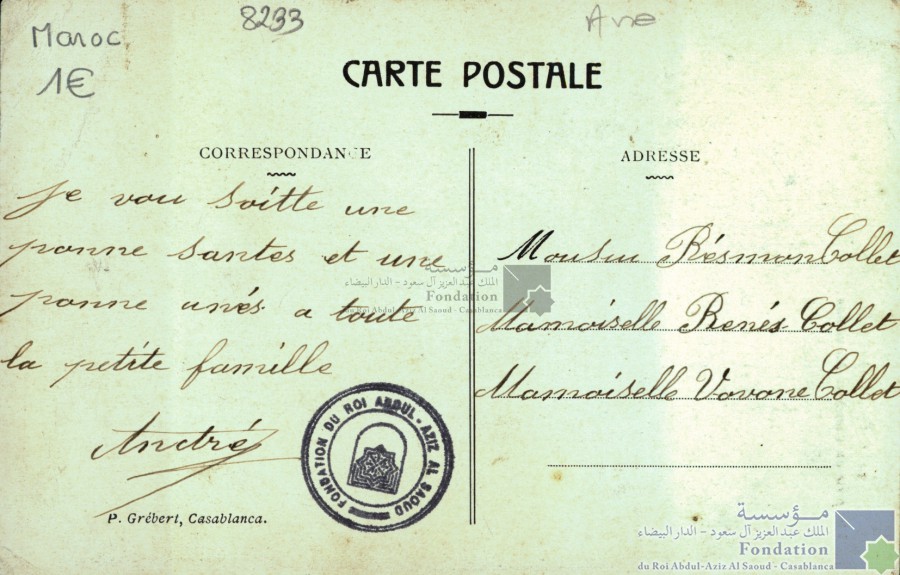 Maroc
1€
8233
CARTE POSTALE
CORRESPONDANCE
Je vou soitte une
ponne santes et une
ponne anés a toute
la petite famille
André
P. Grébert, Casablanca.
FONDATION DU ROI ABDUL-AZIZ AL SAOUD
ADRESSE
Mousu Résmon Collet
Mamoiselle Renés Collet
Mamoiselle Vovone Collet
مؤسسة
الملك عبد العزيز آل سعود - الدار البيضاء
Fondation
du Roi Abdul-Aziz Al Saoud - Casablanca
مؤسسة
الملك عبد العزيز آل سعود - الدار البيضاء
Fondation
du Roi Abdul-Aziz Al Saoud - Casablanca